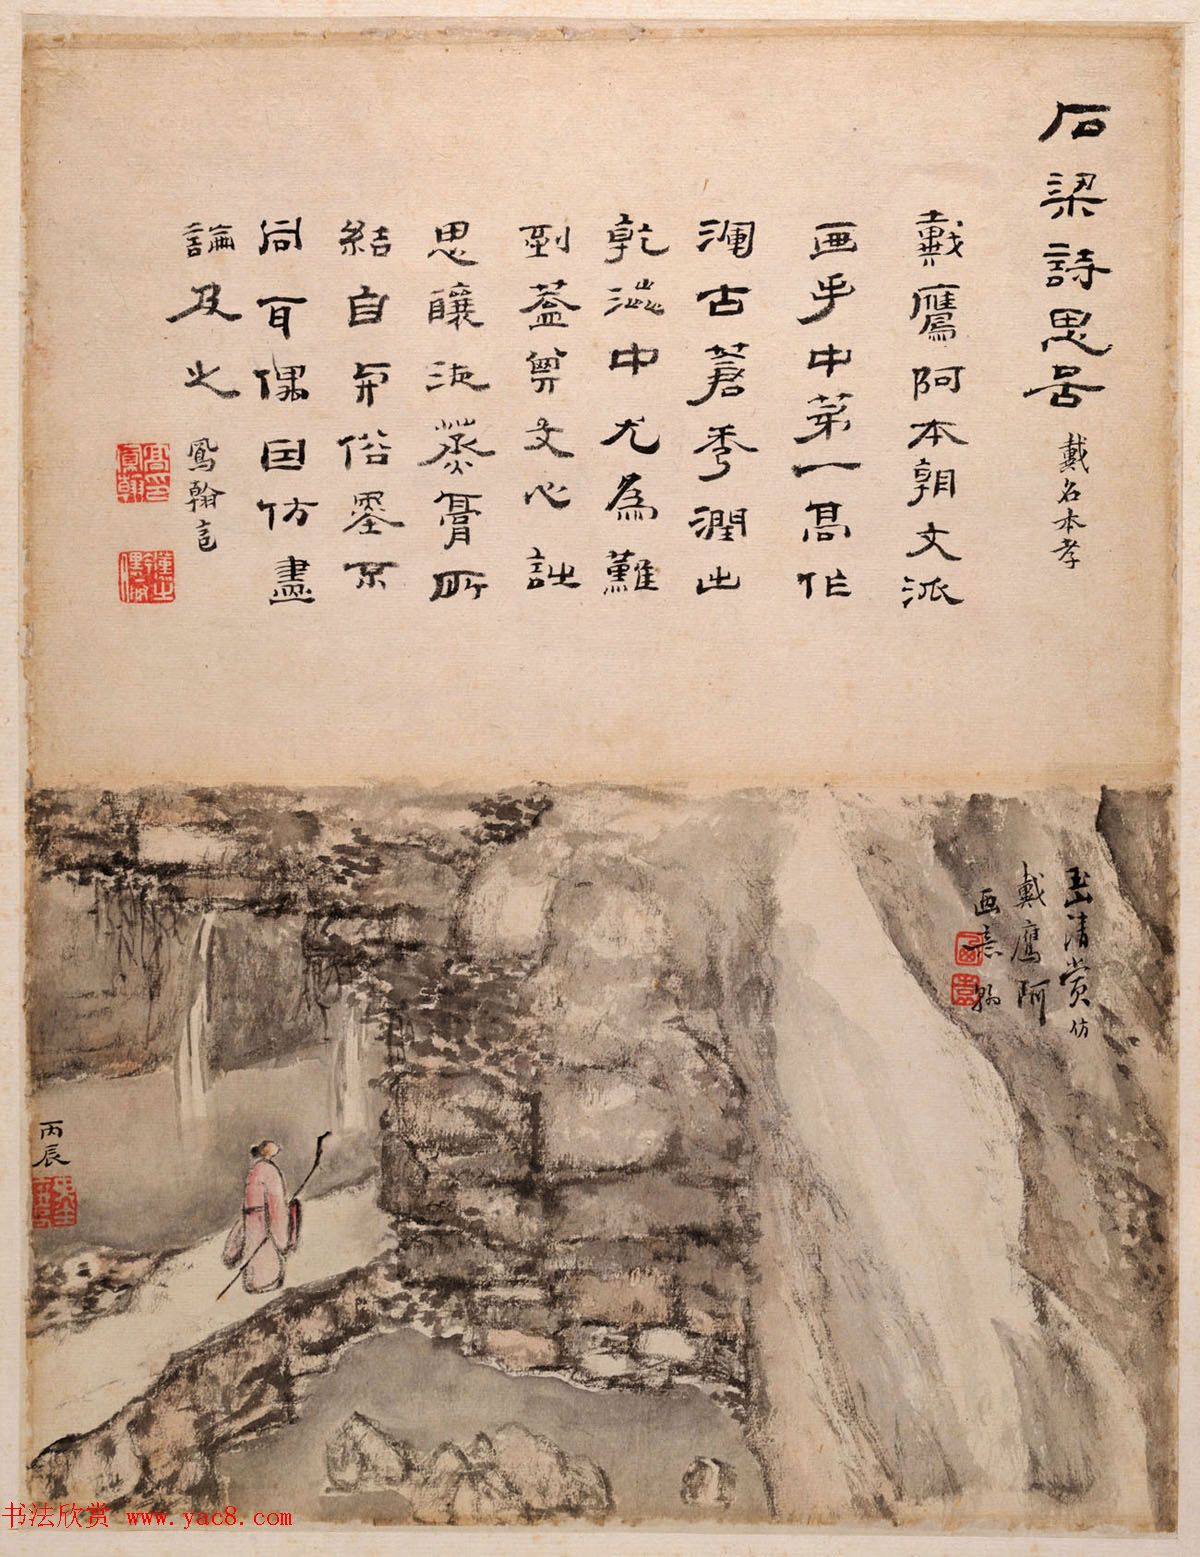 石梁詩思啚
戴名本孝
戴鷹阿本朝文派
画手中第一高作
渾古蒼秀潤出
乾澁中尤爲難
到蓋尊文心詘
思釀泡蒸膏所
結自与俗墨不
同耳偶因仿畫
論及之
鳳翰
清賞仿
戴鷹阿
画意
丙辰
书法欣赏 www.yac8.com